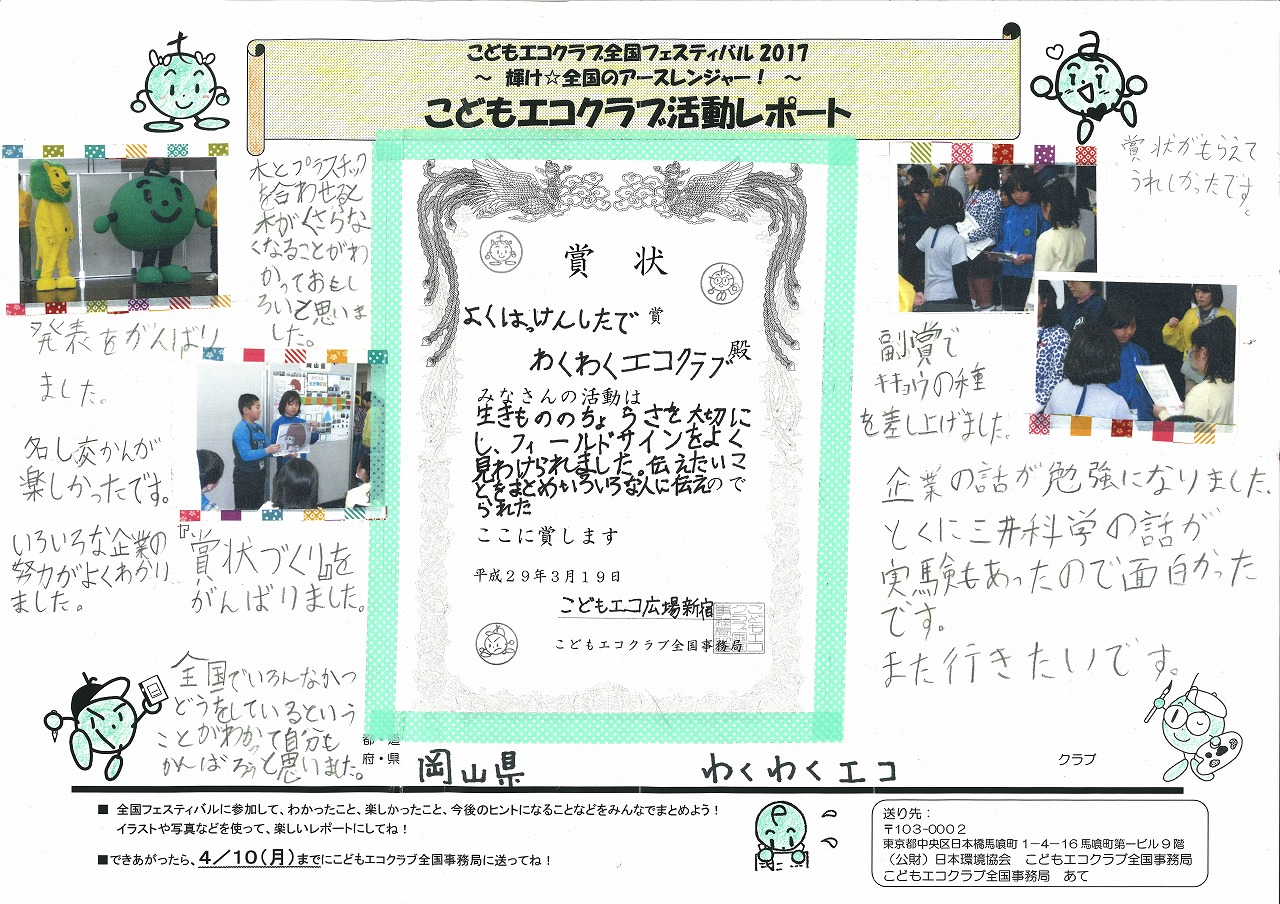 こどもエコクラブ全国フェスティバル2017
～ 輝け☆全国のアースレンジャー！ ～
こどもエコクラブ活動レポート
木とプラスチック
を合わせると
木がくさらな
くなることがわ
かっておもし
ろいと思いま
した。
発表をがんばり
ました。
岡山県
名し交かんが
楽しかったです。
いろいろな企業の
努力がよくわかり
ました。
『賞状づくり』を
がんばりました。
全国でいろんなかつ
どうをしているという
ことがわかって自分も
がんばろうと思いました。
賞 状
よくはっけんしたで 賞
わくわくエコクラブ 殿
みなさんの活動は
生きもののちょうさを大切に
し、フィールドサインをよく
見わけられました。伝えたいこ
とをまとめいろいろな人に伝えので
られた
ここに賞します
平成29年3月19日
こどもエコ広場新宿
こどもエコクラブ全国事務局
賞状がもらえて
うれしかったです。
副賞で
キキョウの種
を差し上げました。
企業の話が勉強になりました。
とくに三井科学の話が
実験もあったので面白かった
です。
また行きたいです。
都・道
府・県
岡山県
わくわくエコ
クラブ
■ 全国フェスティバルに参加して、わかったこと、楽しかったこと、今後のヒントになることなどをみんなでまとめよう！
イラストや写真などを使って、楽しいレポートにしてね！
■できあがったら、4／10（月）までにこどもエコクラブ全国事務局に送ってね！
送り先：
〒103-0002
東京都中央区日本橋馬喰町1－4－16馬喰町第一ビル9階
（公財）日本環境協会　こどもエコクラブ全国事務局
こどもエコクラブ全国事務局　あて